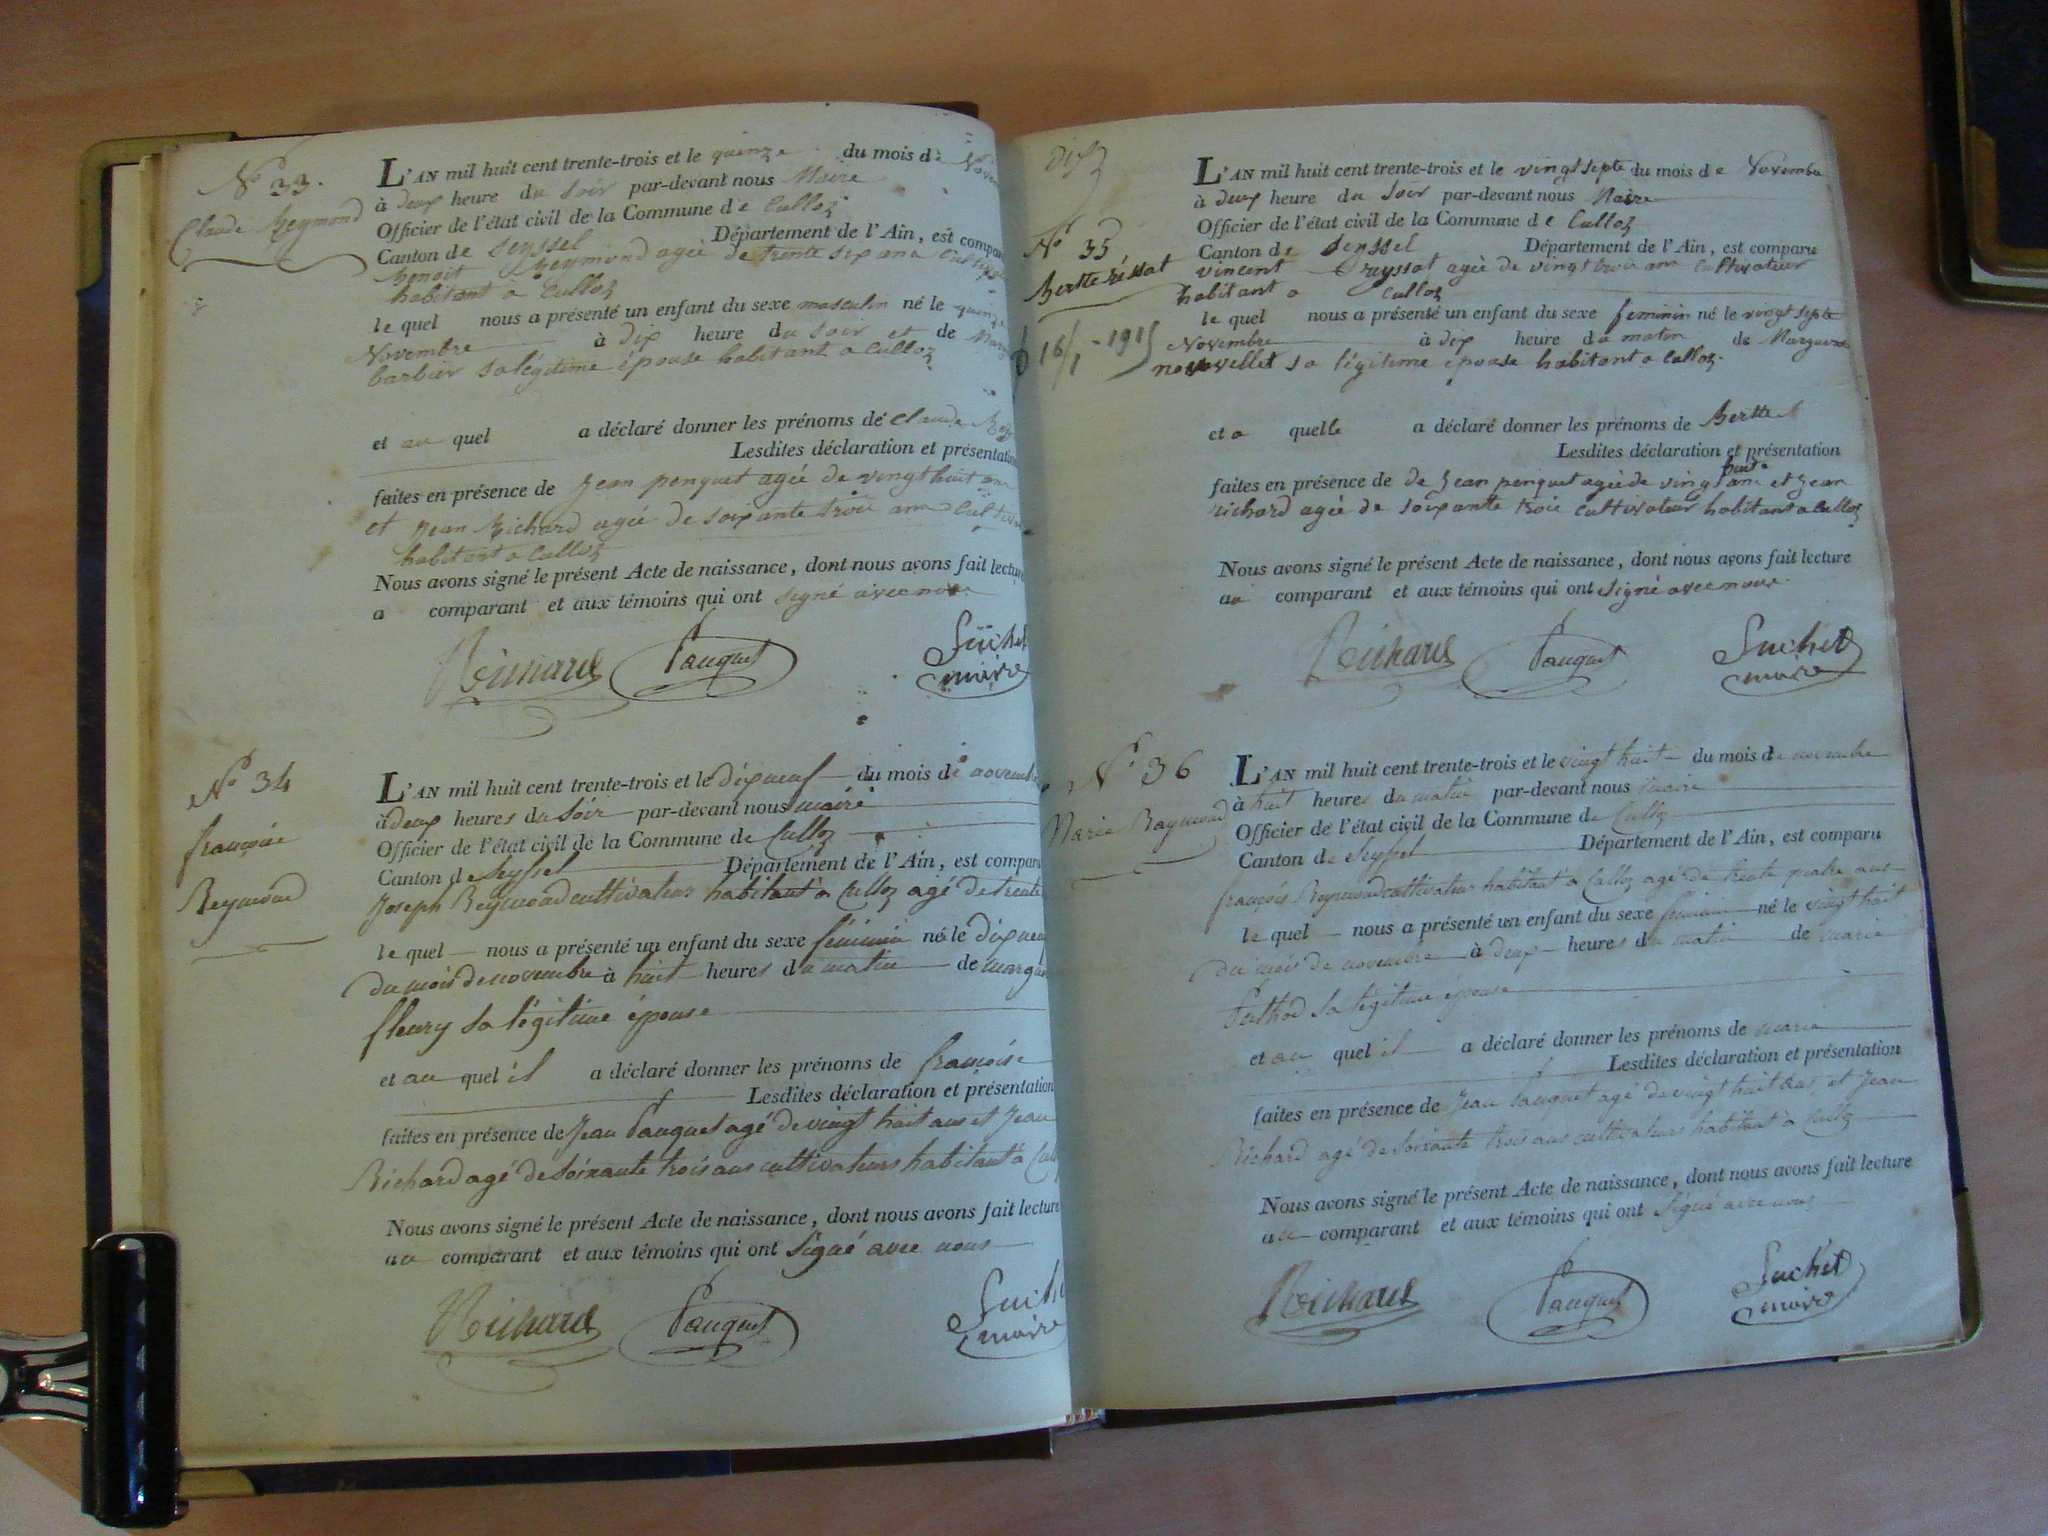 N° 33.
Claude Reymond
L'AN mil huit cent trente-trois et le quinze du mois de
à deux heure du soir par-devant nous Maire
Officier de l'état civil de la Commune de Culloz
Canton de Seyssel Département de l'Ain, est compar
Benoit Reymond agée de trente six ans
habitant a Culloz
le quel nous a présenté un enfant du sexe masculin né le quinze
Novembre à dix heure du soir et de
barbier sa légitime épouse habitant a Culloz
et au quel a déclaré donner les prénoms de Claude
Lesdites déclaration et présentation
faites en présence de Jean penquet agée de vingt huit ans
et Jean Richard agée de soixante trois ans
habitant a Culloz
Nous avons signé le présent Acte de naissance, dont nous avons fait lecture
a comparant et aux témoins qui ont signé avec nous.
Richard Pauquet Suchet
maire
N° 34
françoise
Reymond
L'AN mil huit cent trente-trois et le dix neuf du mois de novemb
à deux heures du soir par-devant nous maire
Officier de l'état civil de la Commune de Culloz
Canton de Seyssel Département de l'Ain, est comparu
Joseph Reymond cultivateur habitant à Culloz agé de trente
le quel nous a présenté un enfant du sexe féminin né le dix neuf
du mois de novembre à huit heures du matin de
fleury sa légitime épouse
et au quel il a déclaré donner les prénoms de françoise
Lesdites déclaration et présentation
faites en présence de Jean Pauquet agé de vingt huit ans et Jean
Richard agé de soixante trois ans cultivateurs habitant à
Nous avons signé le présent Acte de naissance, dont nous avons fait lecture
au comparant et aux témoins qui ont signé avec nous
Richard Pauquet
maire
N° 35
Bertte réssat
16/1 - 1915
L'AN mil huit cent trente-trois et le vingt septe du mois de Novembre
à deux heure du soir par-devant nous Maire
Officier de l'état civil de la Commune de Culloz
Canton de Seyssel Département de l'Ain, est comparu
vincent agée de vingt trois ans cultivateur
habitant a Culloz
le quel nous a présenté un enfant du sexe feminin né le vingt septe
Novembre à dix heure du matin de
sa légitime épouse habitant a Culloz.
et a quelle a déclaré donner les prénoms de Bertte
Lesdites déclaration et présentation
faites en présence de de Jean penquet agée de vingt huit ans et Jean
richard agée de soixante trois cultivateur habitant a Culloz
Nous avons signé le présent Acte de naissance, dont nous avons fait lecture
au comparant et aux témoins qui ont signé avec nous.
Richard Pauquet Suchet
maire
N° 36
Marie Raymond
L'AN mil huit cent trente-trois et le vingt huit du mois de novembre
à huit heures du matin par-devant nous maire
Officier de l'état civil de la Commune de Culloz
Canton de Seyssel Département de l'Ain, est comparu
françois Reymond cultivateur habitant à Culloz agé de trente quatre ans
le quel nous a présenté un enfant du sexe féminin né le vingt huit
du mois de novembre à deux heures du matin de marie
sa légitime épouse
et au quel il a déclaré donner les prénoms de marie
Lesdites déclaration et présentation
faites en présence de Jean Pauquet agé de vingt huit ans et Jean
Richard agé de soixante trois ans cultivateurs habitant à Culloz
Nous avons signé le présent Acte de naissance, dont nous avons fait lecture
au comparant et aux témoins qui ont signé avec nous
Richard Pauquet Suchet
maire